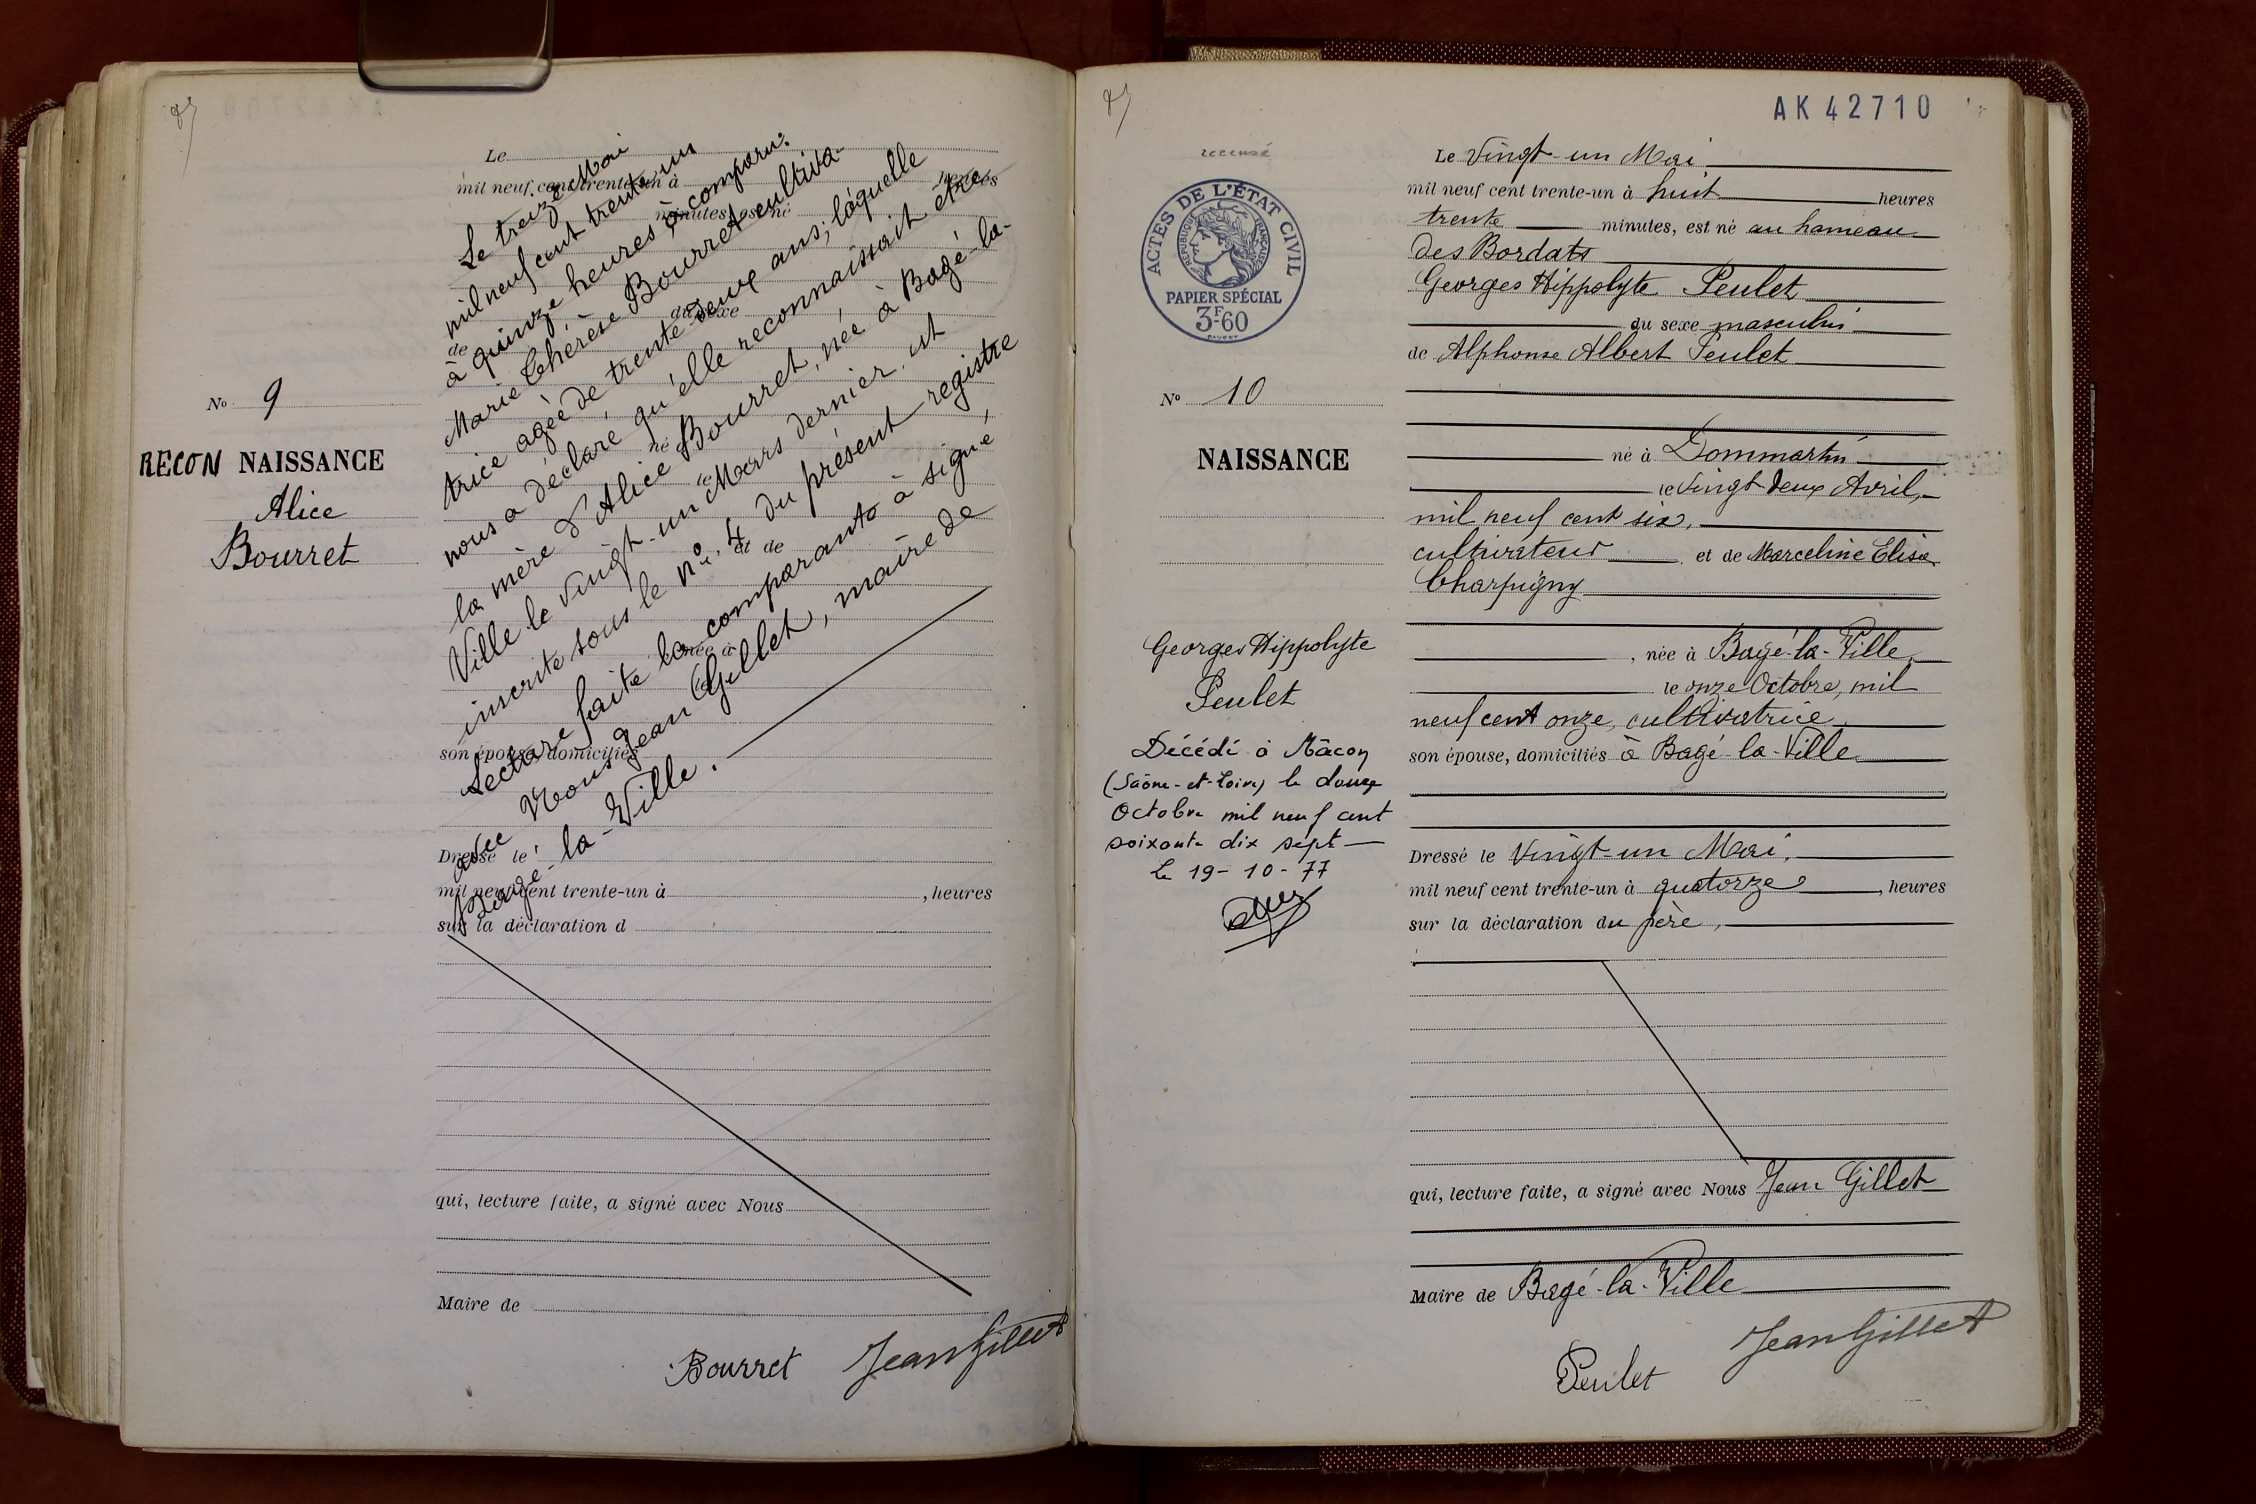 Le
mil neuf cent trente-un à heures
minutes, est né
du sexe
de
né à
le
et de
née à
le
son épouse, domiciliés
Dressé le
mil neuf cent trente-un à , heures
sur la déclaration d
qui, lecture faite, a signé avec Nous
Maire de
No 9
RECONNAISSANCE
Alice
Bourret
Le treize Mai
mil neuf cent trente-un
à quinze heures à comparu:
Marie Thérèse Bourret cultiva-
trice agée de trente deux ans; laquelle
nous a déclaré qu'elle reconnaissait être
la mère d'Alice Bourret, née à Bagé-la-
Ville le vingt-un Mars dernier et
inscrite sous le n° 4 du présent registre
Lecture faite la comparante à signé,
avec Nous Jean Gillet, maire de
Bagé-la-Ville.
Bourret JeanGillet
AK 42710
recensé
ACTES DE L'ÉTAT CIVIL
RÉPUBLIQUE FRANÇAISE
PAPIER SPÉCIAL
3F60
No 10
NAISSANCE
Georges Hippolyte
Peulet
Décédé à Mâcon
(Saône-et-Loire) le douze
Octobre mil neuf cent
soixante dix sept
le 19-10-77
Le Vingt-un Mai
mil neuf cent trente-un à huit heures
trente minutes, est né au hameau
des Bordats
Georges Hippolyte Peulet
du sexe masculin
de Alphonse Albert Peulet
né à Dommartin
le Vingt deux Avril,
mil neuf cent six,
cultivateur et de Marceline Elisa
Charpigny
, née à Bagé-la-Ville,
le onze Octobre, mil
neuf cent onze, cultivatrice
son épouse, domiciliés à Bagé-la-Ville
Dressé le Vingt-un Mai,
mil neuf cent trente-un à quatorze , heures
sur la déclaration du père,
qui, lecture faite, a signé avec Nous Jean Gillet
Maire de Bagé-la-Ville
Peulet JeanGillet